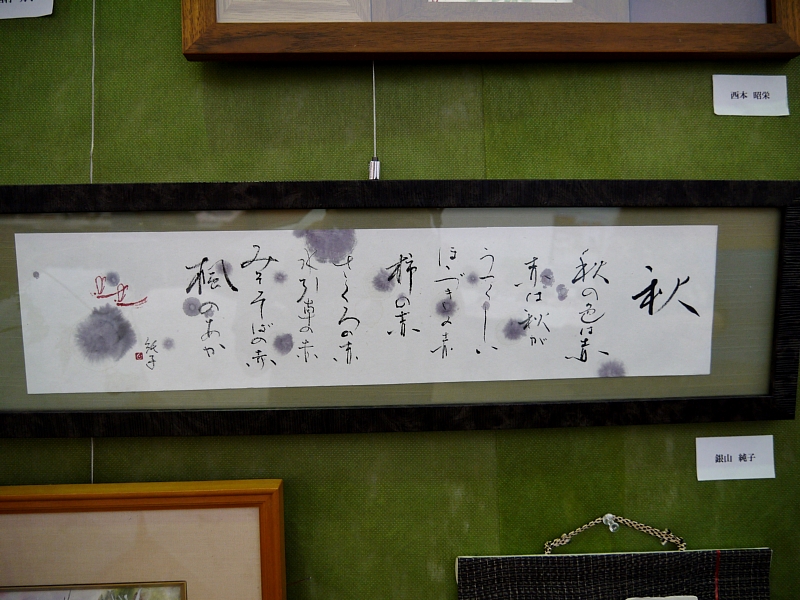 西本 昭栄
秋
秋の色は赤
赤は秋が
うつくしい
ほゝづきの赤
柿の赤
ざくろの赤
水引草の赤
みぞそばの赤
楓のあか
純子
銀山 純子